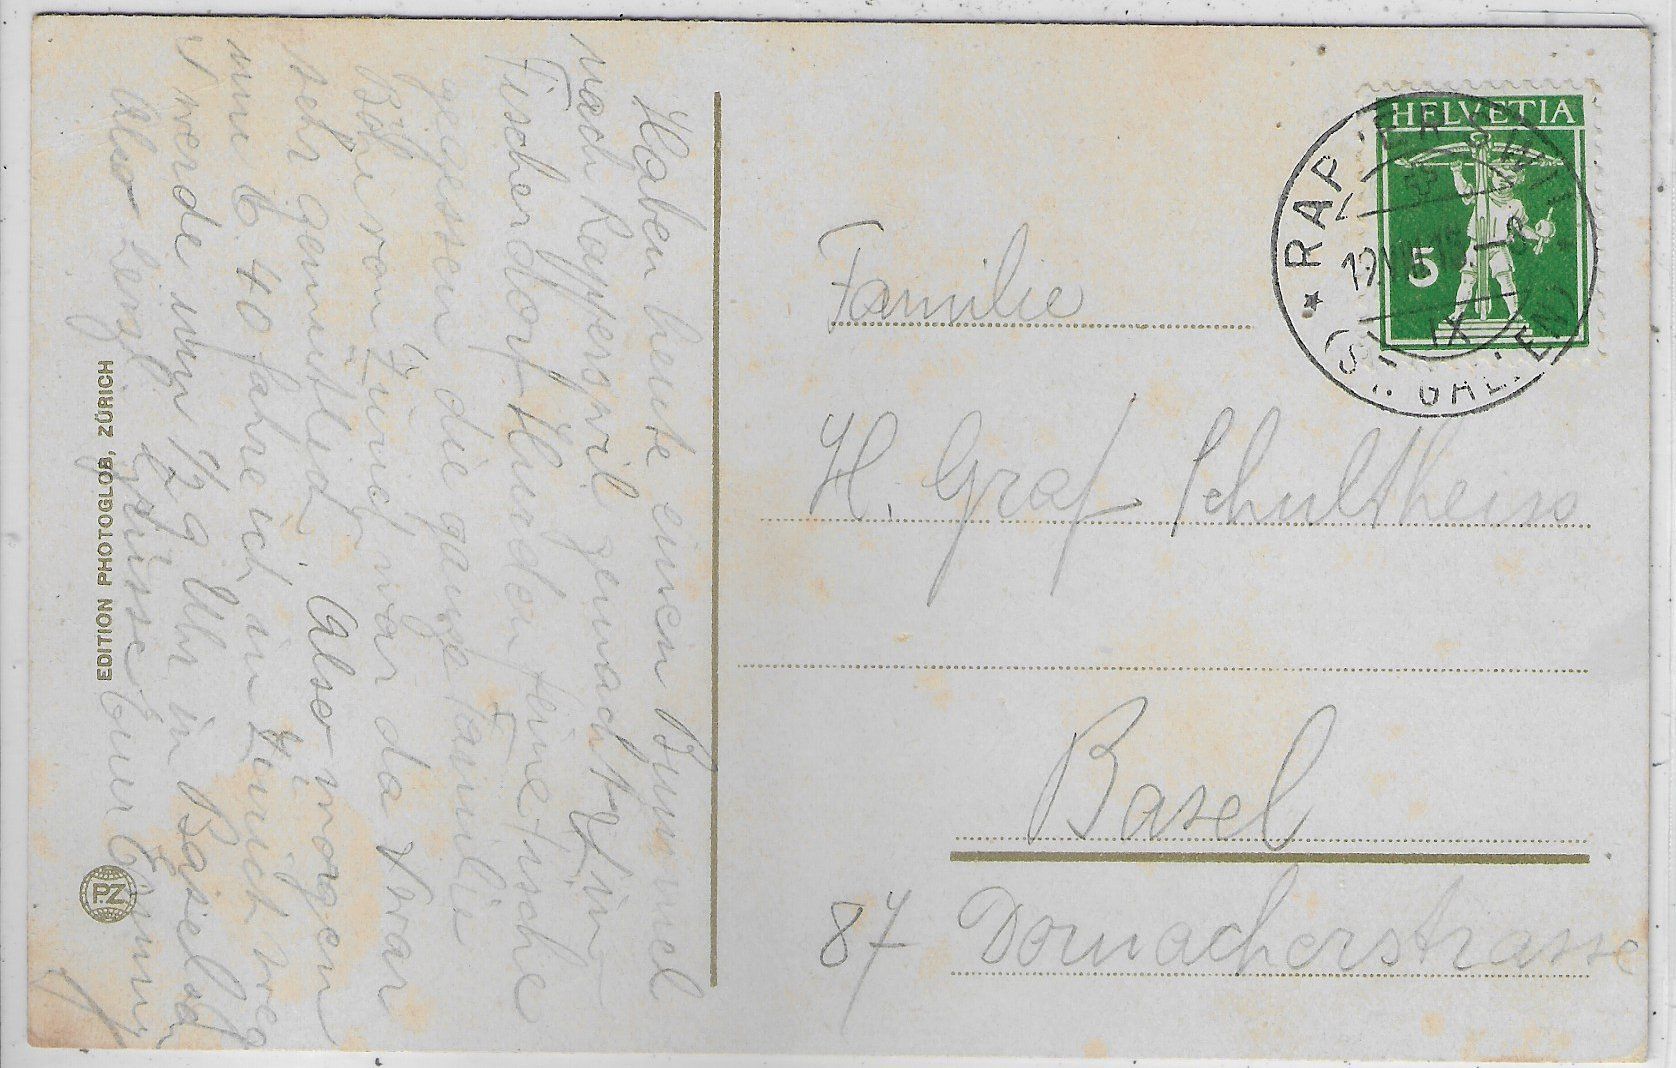 Haben heute einen Bummel
nach Rapperswil gemacht. Im
Fischerdorf Hurden feine Fische
gegessen die ganze Familie
Böhi von Zürich war da & war
sehr gemütlich. Also morgen
um 6.40 fahre ich in Zürich weg
& werde um 1/2 9 Uhr in Basel sd
Also Herzl. Grüsse Euer
EDITION PHOTOGLOB, ZÜRICH
P.Z.
HELVETIA
5
RAPPERSWIL
(ST. GALLEN)
IX
Familie
H. Graf Schultheiss
Basel
87 Dornacherstrasse